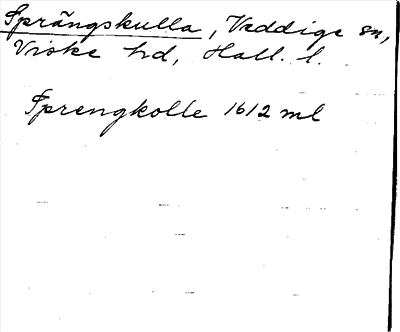 Sprängskulla, Veddige sn,
Viske hd, Hall. l.
Sprengkolle 1612 ml